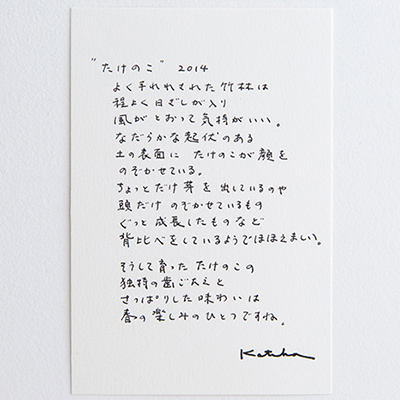 "たけのこ" 2014
よく手入れされた竹林は
程よく日ざしが入り
風がとおって気持がいい。
なだらかな起伏のある
土の表面に たけのこが顔を
のぞかせている。
ちょっとだけ芽を出しているのや
頭だけのぞかせているもの
ぐっと成長したものなど
背比べをしているようでほほえましい。
そうして育ったたけのこの
独特の歯ごたえと
さっぱりした味わいは
春の楽しみのひとつですね。